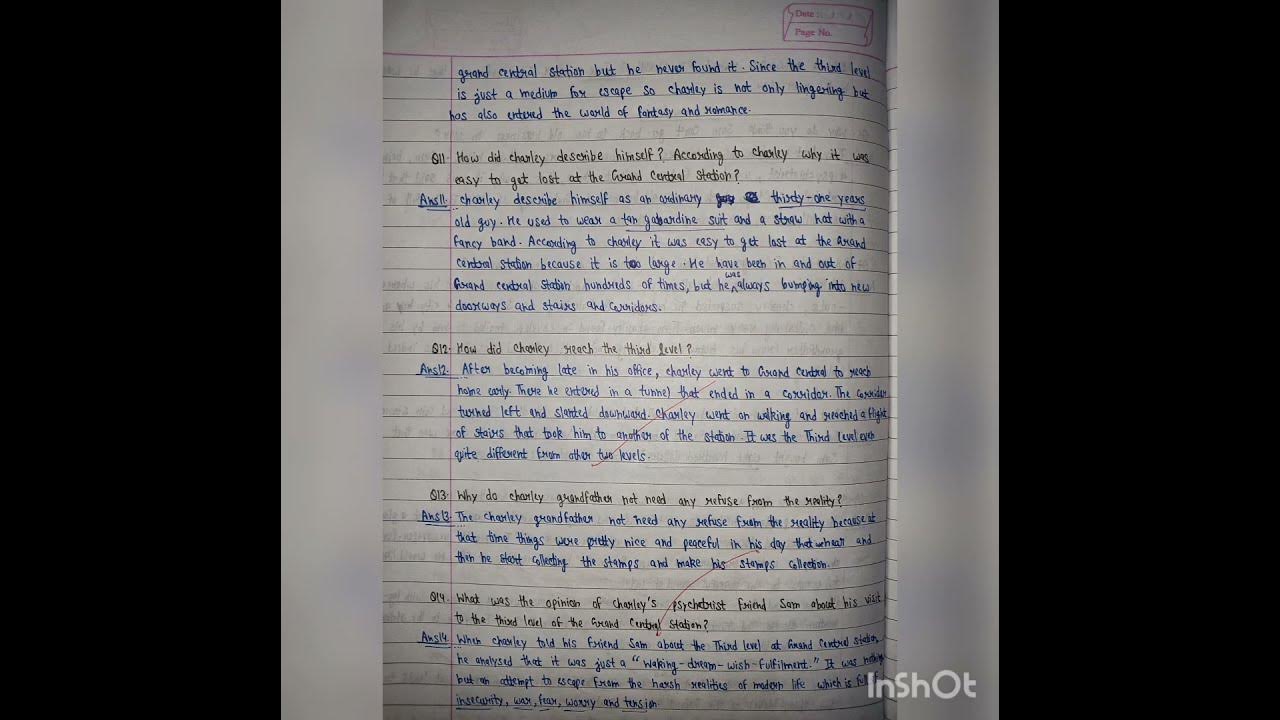 Date
Page No.
grand central station but he never found it. Since the third level
is just a medium for escape so charley is not only lingering but
has also entered the world of fantasy and romance.
Q11. How did charley describe himself? According to charley why it was
easy to get lost at the Grand Central Station?
Ans11. charley describe himself as an ordinary thirdty-one years
old guy. He used to wear a tan gabardine suit and a straw hat with a
fancy band. According to charley it was easy to get lost at the Grand
central station because it is too large. He have been in and out of
Grand central station hundreds of times, but he was always bumping into new
doorways and stairs and corridors.
Q12. How did charley reach the third level?
Ans12. After becoming late in his office, charley went to Grand Central to reach
home early. There he entered in a tunnel that ended in a corridor. The corridor
turned left and slanted downward. charley went on walking and reached a flight
of stairs that took him to another of the station. It was the Third level even
quite different from other two levels.
Q13. Why do charley grandfather not need any refuse from the reality?
Ans13. The charley grandfather not need any refuse from the reality because at
that time things were pretty nice and peaceful in his day that and
then he start collecting the stamps and make his stamps collection.
Q14. What was the opinion of charley's psychetrist friend Sam about his visit
to the third level of the Grand Central Station?
Ans14. When charley told his friend Sam about the Third level at Grand Central station
he analysed that it was just a "waking-dream-wish-fulfilment." It was nothing
but an attempt to escape from the harsh realities of modern life which is full of
insecurity, war, fear, worry and tension.
InShOt